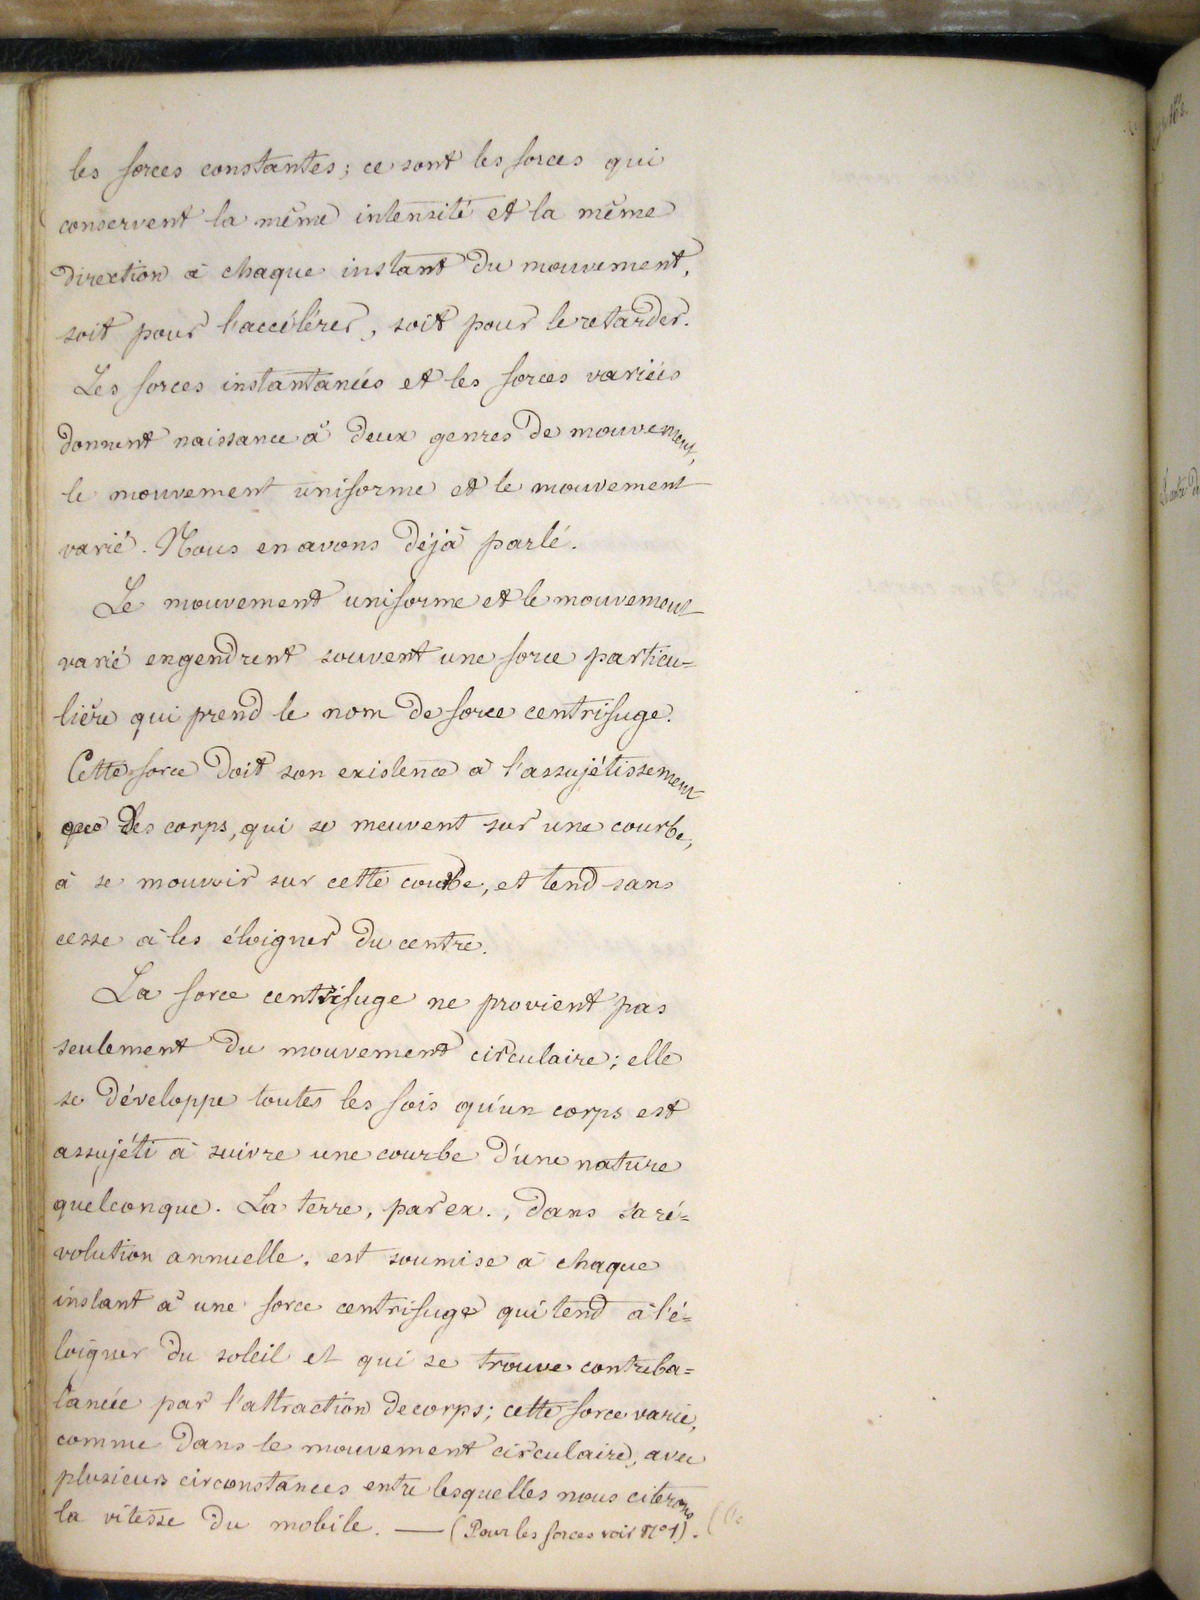 les forces constantes; ce sont les forces qui
conservent la même intensité et la même
direction à chaque instant du mouvement,
soit pour l'accélérer, soit pour le retarder.
Les forces instantanées et les forces variées
donnent naissance à deux genres de mouvement,
le mouvement uniforme et le mouvement
varié. Nous en avons déjà parlé.
Le mouvement uniforme et le mouvement
varié engendrent souvent une force particu=
lière qui prend le nom de force centrifuge.
Cette force doit son existence à l'assujétissement
des corps, qui se meuvent sur une courbe,
à se mouvoir sur cette courbe, et tend sans
cesse à les éloigner du centre.
La force centrifuge ne provient pas
seulement du mouvement circulaire; elle
se développe toutes les fois qu'un corps est
assujéti à suivre une courbe d'une nature
quelconque. La terre, par ex., dans sa ré=
volution annuelle, est soumise à chaque
instant à une force centrifuge qui tend à l'é=
loigner du soleil et qui se trouve contreba=
lancée par l'attraction de corps; cette force varie,
comme dans le mouvement circulaire, avec
plusieurs circonstances entre lesquelles nous citerons
la vitesse du mobile. — (Pour les forces voir N° 1).